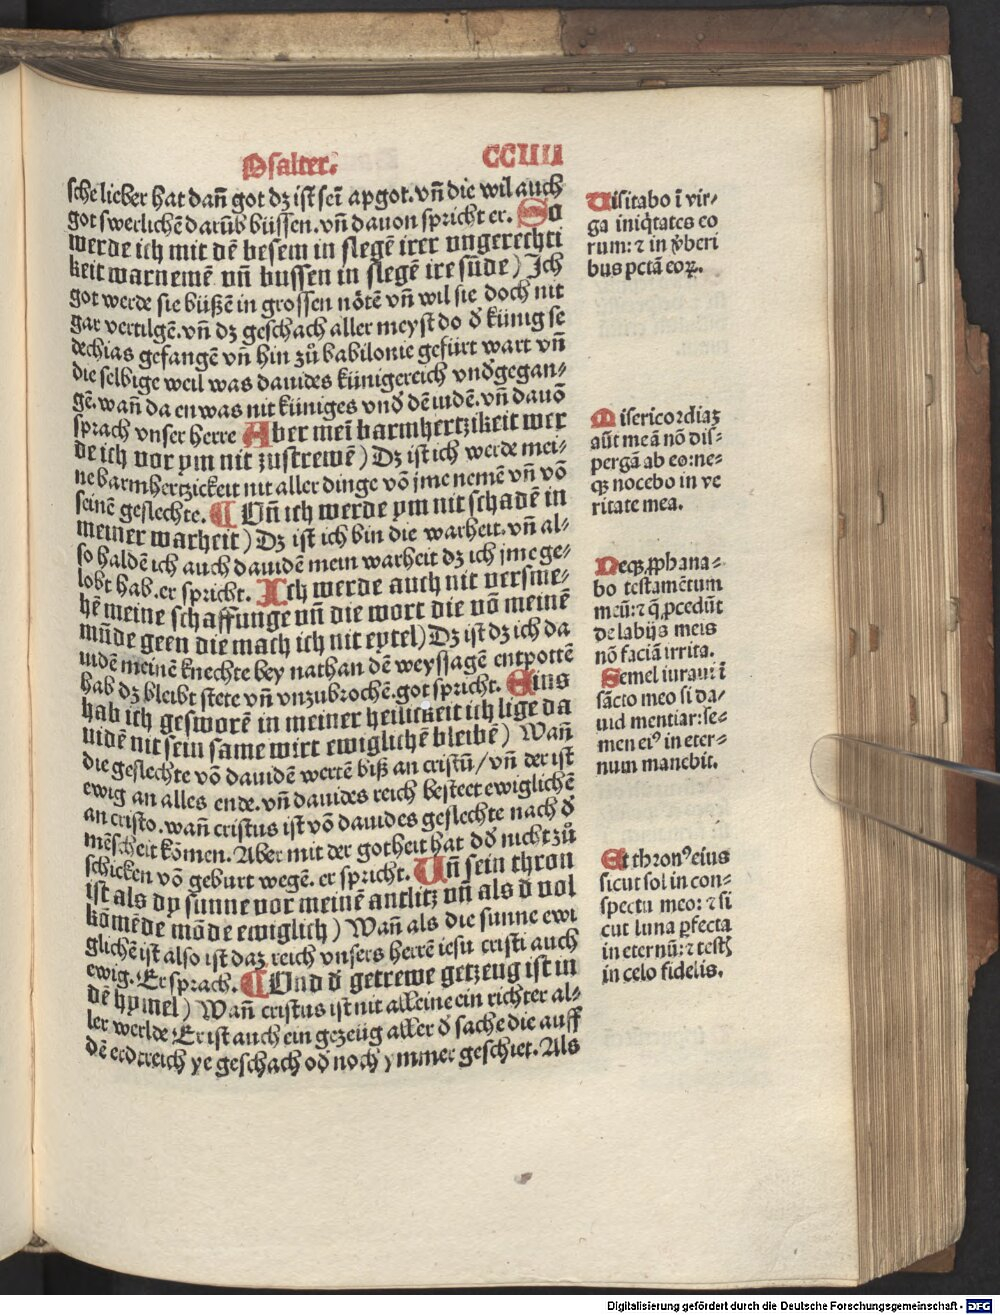 Psalter. CCIIII
sche lieber hat dañ got dz ist seī apgot. vñ die wil auch
got swerlichē darūb büssen. vñ dauon spricht er. So
werde ich mit dē besem in slegē irer vngerechti
keit warnemē vñ bussen in slegē ire sūde) Ich
got werde sie büßē in grossen nötē vñ wil sie doch nit
gar vertilgē. vñ dz geschach aller meyst do d̄ künig se
dechias gefangē vñ hin zů babilonie gefürt wart vñ
die selbige weil was dauides künigereich vnd̄gegan⸗
gē. wañ da en was nit küniges vnd̄ dē iudē. vñ dauō
sprach vnser herre Aber meī barmhertzikeit wer
de ich vor ym nit zustrewē) Dz ist ich werde mei⸗
ne barmhertzickeit nit aller dinge vō jme nemē vñ vō
seinē geslechte. ¶ Uñ ich werde ym nit schadē in
meiner warheit) Dz ist ich bin die warheit. vñ al⸗
so haldē ich auch dauidē mein warheit dz ich jme ge⸗
lobt hab. er spricht. Ich werde auch nit versme⸗
hē meine schaffunge vñ die wort die vō meinē
mūde geen die mach ich nit eytel) Dz ist dz ich da
uidē meinē knechte bey nathan dē weyssagē entpottē
hab dz bleibt stete vñ vnzubrochē. got spricht. Eins
hab ich gesworē in meiner heilickeit ich lige da
uidē nit sein same wirt ewiglichē bleibē) Wañ
die geslechte vō dauidē wertē biß an cristū/ vñ der ist
ewig an alles ende. vñ dauides reich besteet ewiglichē
an cristo. wañ cristus ist vō dauides geslechte nach d̄
mēscheit kōmen. Aber mit der gotheit hat dd̄ nicht zů
schicken vō geburt wegē. er spricht. Uñ sein thron
ist als dy sunne vor meinē antlitz vñ als d̄ vol
kōmēde mōde ewiglich) Wañ als die sunne ewi
glichē ist also ist daz reich vnsers herrē iesu cristi auch
ewig. Er sprach. ¶ Und d̄ getrewe getzeug ist in
dē hymel) Wañ cristus ist nit alleine ein richter al⸗
ler werlde Er ist auch ein gezeüg aller d̄ sache die auff
dē erdtreich ye geschach od̄ noch ymmer geschiet. Als
Uisitabo ī vir⸗
ga iniq̇tates eo
rum: ⁊ in v̄beri
bus pctā eoꝝ.
Misericordiaꝫ
aūt meā nō dis⸗
pergā ab eo: ne⸗
qꝫ nocebo in ve
ritate mea.
Neqꝫ ꝓphana⸗
bo testamētum
meū: ⁊ q̄ ꝓcedūt
de labijs meis
nō faciā irrita.
Semel iuraui ī
sācto meo si da⸗
uid mentiar: se⸗
men eiꝰ in eter⸗
num manebit.
Et thronꝰ eius
sicut sol in con⸗
spectu meo: ⁊ si
cut luna ꝑfecta
in eternū: ⁊ testꝭ
in celo fidelis.
Digitalisierung gefördert durch die Deutsche Forschungsgemeinschaft - DFG